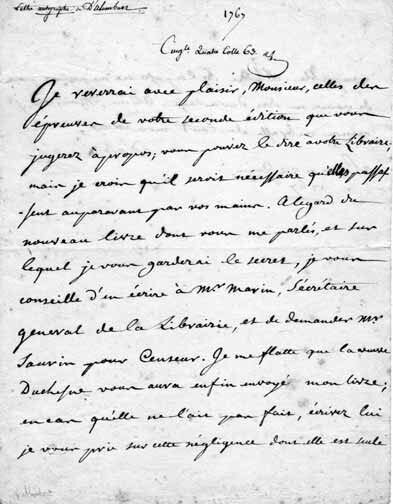 Lettre autographe de D'Alembert
1767
Cingt. quatre Colle 63.
Je reverrai avec plaisir, Monsieur, celles des
épreuves de votre seconde édition que vous
jugerez à propos; vous pouvez le dire à votre Libraire,
mais je crois qu'il seroit nécessaire qu'elles passas-
-sent auparavant par vos mains. A legard du
nouveau livre dont vous me parlés, et sur
lequel je vous garderai le secret, je vous
conseille d'en écrire à Mr. Marin, Sécrétaire
general de la Librairie, et de demander Mr.
Saurin pour Censeur. Je me flatte que la veuve
Duchesne vous aura enfin envoyé mon livre;
en cas qu'elle ne l'ait pas fait, écrivez lui
je vous prie sur cette négligence dont elle est seule